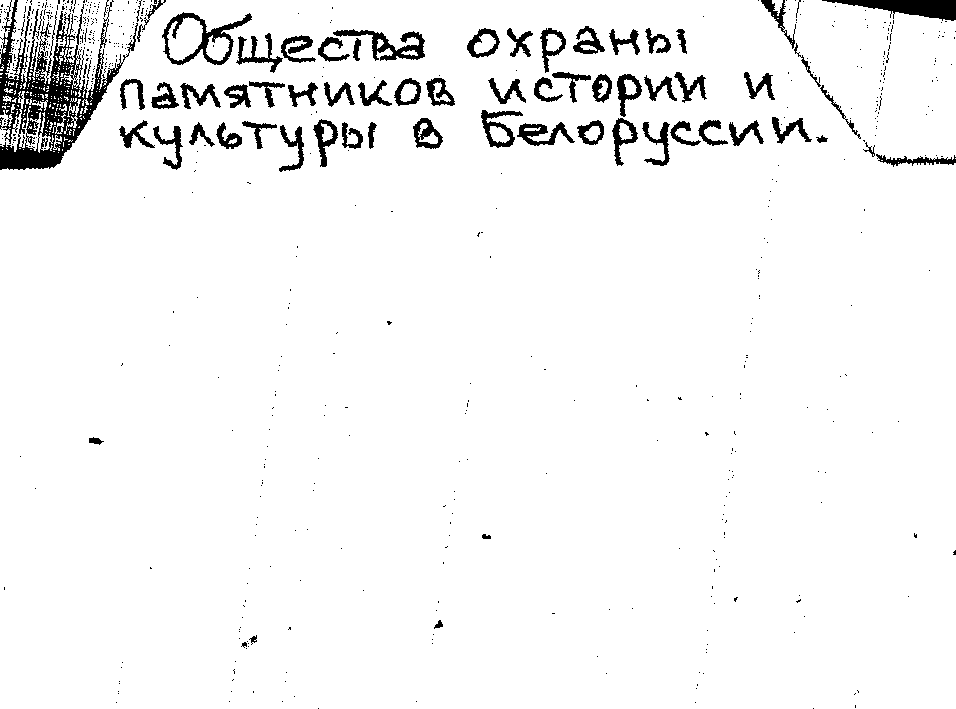 Общества охраны
памятников истории и
культуры в Белоруссии.